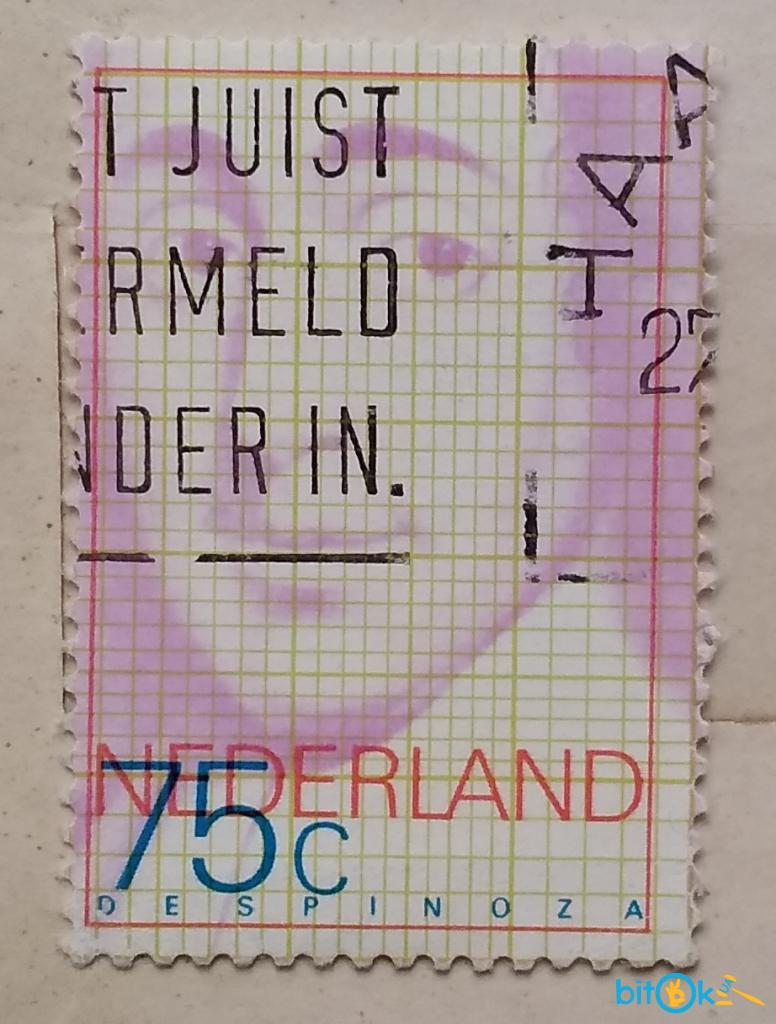 T JUIST
RMELD
NDER IN.
27
NEDERLAND
75c
DESPINOZA
bitok.ua